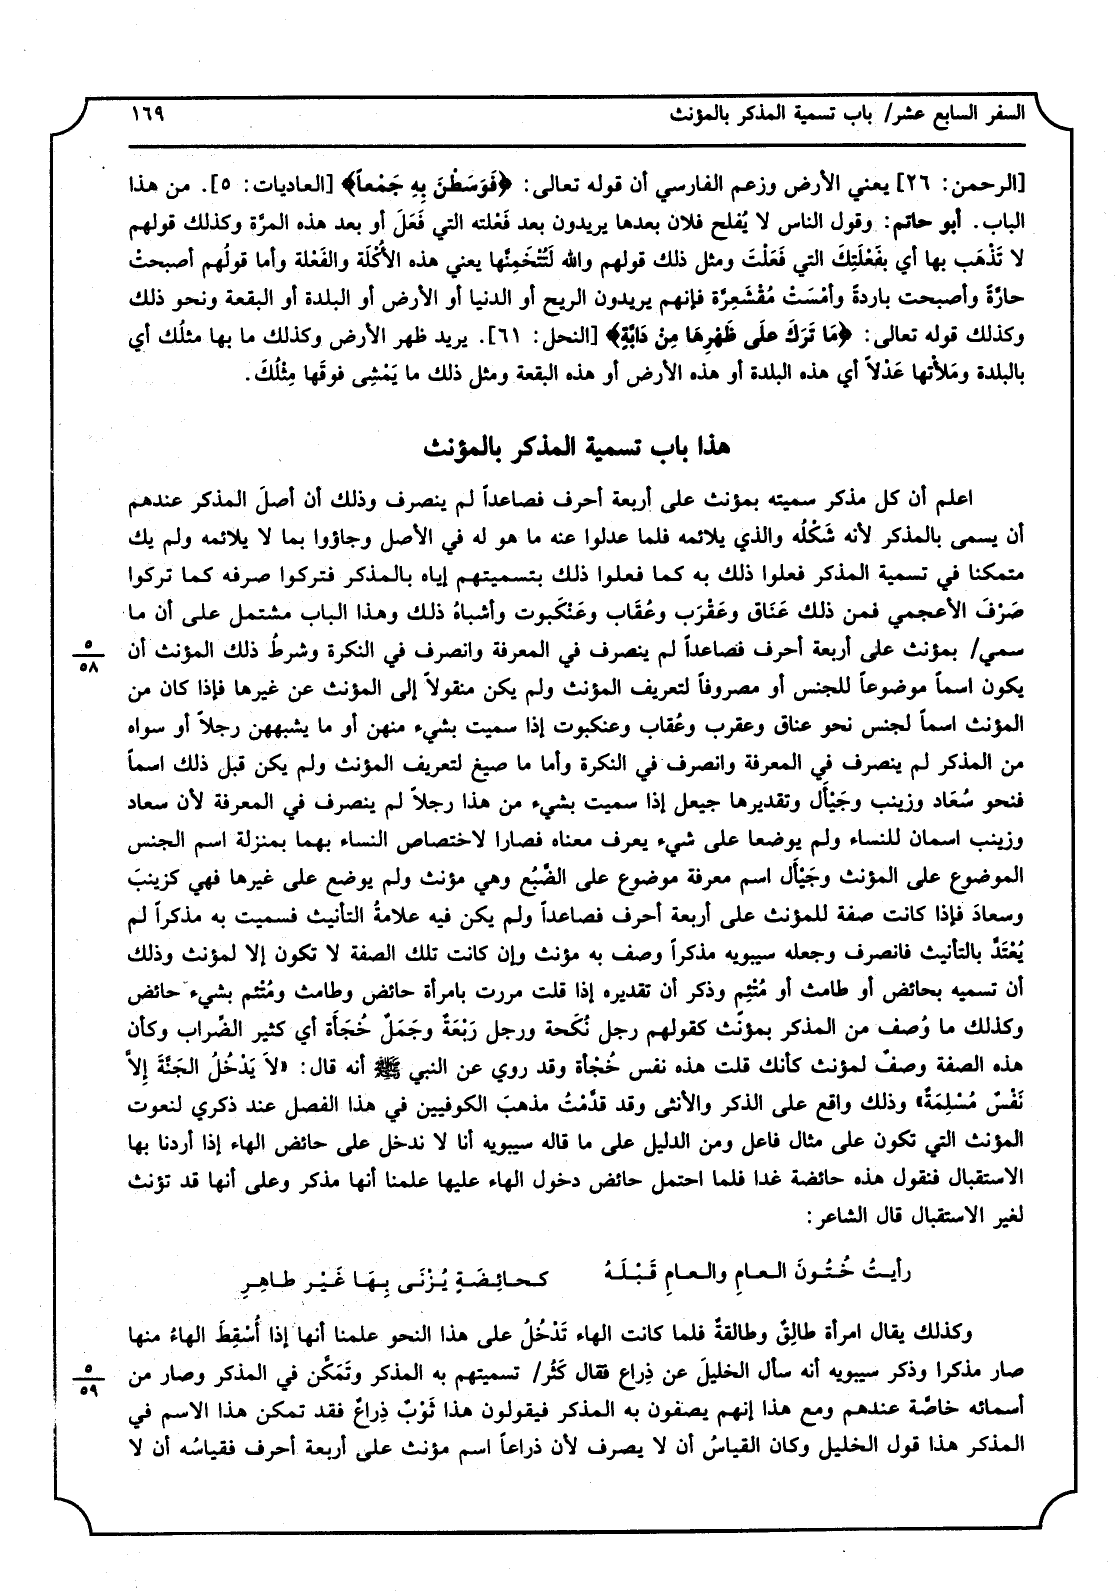 السفر السابع عشر/ باب تسمية المذكر بالمؤنث ١٦٩
[الرحمن: ٢٦] يعني الأرض وزعم الفارسي أن قوله تعالى: ﴿فَوَسَطْنَ بِهِ جَمْعاً﴾ [العاديات: ٥]. من هذا
الباب. أبو حاتم: وقول الناس لا يُفلح فلان بعدها يريدون بعد فَعْلته التي فَعَلَ أو بعد هذه المرَّة وكذلك قولهم
لا تَذْهَب بها أي بفَعْلَتِكَ التي فَعَلْتَ ومثل ذلك قولهم والله لَتُتْخَمِنَّها يعني هذه الأُكْلَة والفَعْلة وأما قولُهم أصبحتْ
حارَّةً وأصبحت باردةً وأمْسَتْ مُقْشَعِرَّة فإنهم يريدون الريح أو الدنيا أو الأرض أو البلدة أو البقعة ونحو ذلك
وكذلك قوله تعالى: ﴿مَا تَرَكَ علَى ظَهْرِهَا مِنْ دَابَّةٍ﴾ [النحل: ٦١]. يريد ظهر الأرض وكذلك ما بها مثلُك أي
بالبلدة ومَلأتها عَدْلاً أي هذه البلدة أو هذه الأرض أو هذه البقعة ومثل ذلك ما يَمْشِى فوقَها مِثْلُكَ.
هذا باب تسمية المذكر بالمؤنث
اعلم أن كل مذكر سميته بمؤنث على أربعة أحرف فصاعداً لم ينصرف وذلك أن أصلَ المذكر عندهم
أن يسمى بالمذكر لأنه شَكْلُه والذي يلائمه فلما عدلوا عنه ما هو له في الأصل وجاؤوا بما لا يلائمه ولم يك
متمكنا في تسمية المذكر فعلوا ذلك به كما فعلوا ذلك بتسميتهم إياه بالمذكر فتركوا صرفه كما تركوا
صَرْفَ الأعجمي فمن ذلك عَنَاق وعَقْرَب وعُقَاب وعَنْكَبوت وأشباهُ ذلك وهذا الباب مشتمل على أن ما
سمي/ بمؤنث على أربعة أحرف فصاعداً لم ينصرف في المعرفة وانصرف في النكرة وشرطُ ذلك المؤنث أن
٥
٥٨
يكون اسماً موضوعاً للجنس أو مصروفاً لتعريف المؤنث ولم يكن منقولاً إلى المؤنث عن غيرها فإذا كان من
المؤنث اسماً لجنس نحو عناق وعقرب وعُقاب وعنكبوت إذا سميت بشيء منهن أو ما يشبههن رجلاً أو سواه
من المذكر لم ينصرف في المعرفة وانصرف في النكرة وأما ما صيغ لتعريف المؤنث ولم يكن قبل ذلك اسماً
فنحو سُعَاد وزينب وجَيْأَل وتقديرها جيعل إذا سميت بشيء من هذا رجلاً لم ينصرف في المعرفة لأن سعاد
وزينب اسمان للنساء ولم يوضعا على شيء يعرف معناه فصارا لاختصاص النساء بهما بمنزلة اسم الجنس
الموضوع على المؤنث وجَيْأَل اسم معرفة موضوع على الضَّبُع وهي مؤنث ولم يوضع على غيرها فهي كزينبَ
وسعادَ فإذا كانت صفة للمؤنث على أربعة أحرف فصاعداً ولم يكن فيه علامةُ التأنيث فسميت به مذكراً لم
يُعْتَدَّ بالتأنيث فانصرف وجعله سيبويه مذكراً وصف به مؤنث وإن كانت تلك الصفة لا تكون إلا لمؤنث وذلك
أن تسميه بحائض أو طامث أو مُتْئِم وذكر أن تقديره إذا قلت مررت بامرأة حائض وطامث ومُتْئم بشيء حائض
وكذلك ما وُصف من المذكر بمؤنَّث كقولهم رجل نُكَحة ورجل رَبْعَةٌ وجَمَلٌ خُجَأَة أي كثير الضِّراب وكأن
هذه الصفة وصفٌ لمؤنث كأنك قلت هذه نفس خُجْأة وقد روي عن النبي ﷺ أنه قال: «لاَ يَدْخُلُ الجَنَّةَ إلاَّ
نَفْسٌ مُسْلِمَةٌ» وذلك واقع على الذكر والأنثى وقد قدَّمْتُ مذهبَ الكوفيين في هذا الفصل عند ذكري لنعوت
المؤنث التي تكون على مثال فاعل ومن الدليل على ما قاله سيبويه أنا لا ندخل على حائض الهاء إذا أردنا بها
الاستقبال فنقول هذه حائضة غدا فلما احتمل حائض دخول الهاء عليها علمنا أنها مذكر وعلى أنها قد تؤنث
لغير الاستقبال قال الشاعر:
رأيـتُ خُـتُـونَ العـامِ والـعـامِ قَـبْـلَـهُ كـحـائِـضَـةٍ يُـزْنَـى بِـهَـا غَـيْـر طـاهِـرِ
وكذلك يقال امرأة طالِقٌ وطالقةٌ فلما كانت الهاء تَدْخُلُ على هذا النحو علمنا أنها إذا أُسْقِطَ الهاءُ منها
صار مذكرا وذكر سيبويه أنه سأل الخليلَ عن ذِراع فقال كَثُر/ تسميتهم به المذكر وتَمَكَّن في المذكر وصار من
٥
٥٩
أسمائه خاصَّة عندهم ومع هذا إنهم يصفون به المذكر فيقولون هذا ثَوْبٌ ذِراعٌ فقد تمكن هذا الاسم في
المذكر هذا قول الخليل وكان القياسُ أن لا يصرف لأن ذراعاً اسم مؤنث على أربعة أحرف فقياسُه أن لا